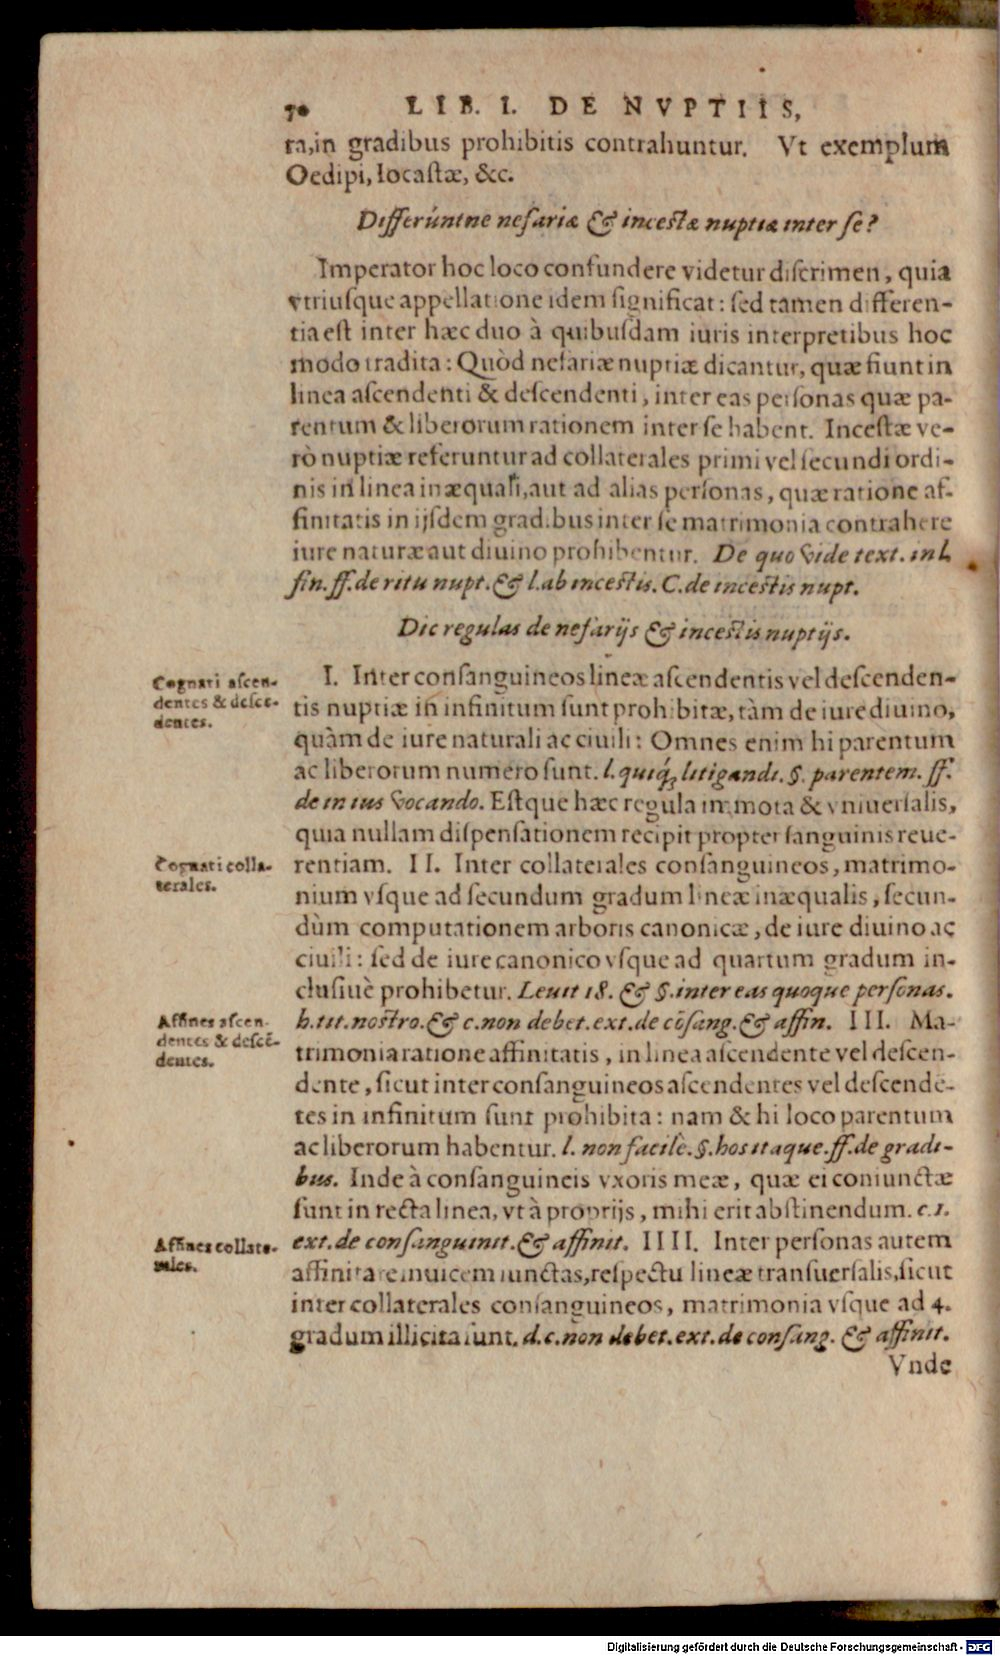 70 LIB. I. DE NVPTIIS,
ra, in gradibus prohibitis contrahuntur. Vt exemplum
Oedipi, Iocastæ, &c.
Differúntne nefariæ & incestæ nuptiæ inter se?
Imperator hoc loco confundere videtur discrimen, quia
vtriusque appellatione idem significat: sed tamen differen-
tia est inter hæc duo à quibusdam iuris interpretibus hoc
modo tradita: Quòd nefariæ nuptiæ dicantur, quæ fiunt in
linea ascendenti & descendenti, inter eas personas quæ pa-
rentum & liberorum rationem inter se habent. Incestæ ve-
rò nuptiæ referuntur ad collaterales primi vel secundi ordi-
nis in linea inæquali, aut ad alias personas, quæ ratione af-
finitatis in ijsdem gradibus inter se matrimonia contrahere
iure naturæ aut diuino prohibentur. De quo vide text. in l.
fin. ff. de ritu nupt. & l. ab incestis. C. de incestis nupt.
Dic regulas de nefarijs & incestis nuptijs.
Cognati ascen-
dentes & desce-
dentes.
I. Inter consanguineos lineæ ascendentis vel descenden-
tis nuptiæ in infinitum sunt prohibitæ, tàm de iure diuino,
quàm de iure naturali ac ciuili: Omnes enim hi parentum
ac liberorum numero sunt. l. quiq́; litigandi. §. parentem. ff.
de in ius vocando. Estque hæc regula immota & vniuersalis,
quia nullam dispensationem recipit propter sanguinis reue-
Cognati colla-
terales.
rentiam. II. Inter collaterales consanguineos, matrimo-
nium vsque ad secundum gradum lineæ inæqualis, secun-
dùm computationem arboris canonicæ, de iure diuino ac
ciuili: sed de iure canonico vsque ad quartum gradum in-
clusiuè prohibetur. Leuit 18. & §. inter eas quoque personas.
Affines ascen-
dentes & descē-
dentes.
h. tit. nostro. & c. non debet. ext. de cōsang. & affin. III. Ma-
trimonia ratione affinitatis, in linea ascendente vel descen-
dente, sicut inter consanguineos ascendentes vel descendē-
tes in infinitum sunt prohibita: nam & hi loco parentum
ac liberorum habentur. l. non facilè. §. hos itaque. ff. de gradi-
bus. Inde à consanguineis vxoris meæ, quæ ei coniunctæ
sunt in recta linea, vt à proprijs, mihi erit abstinendum. c. 1.
Affines collate-
rales.
ext. de consanguinit. & affinit. IIII. Inter personas autem
affinitate inuicem iunctas, respectu lineæ transuersalis, sicut
inter collaterales consanguineos, matrimonia vsque ad 4.
gradum illicita sunt. d. c. non debet. ext. de consang. & affinit.
Vnde
Digitalisierung gefördert durch die Deutsche Forschungsgemeinschaft - DFG